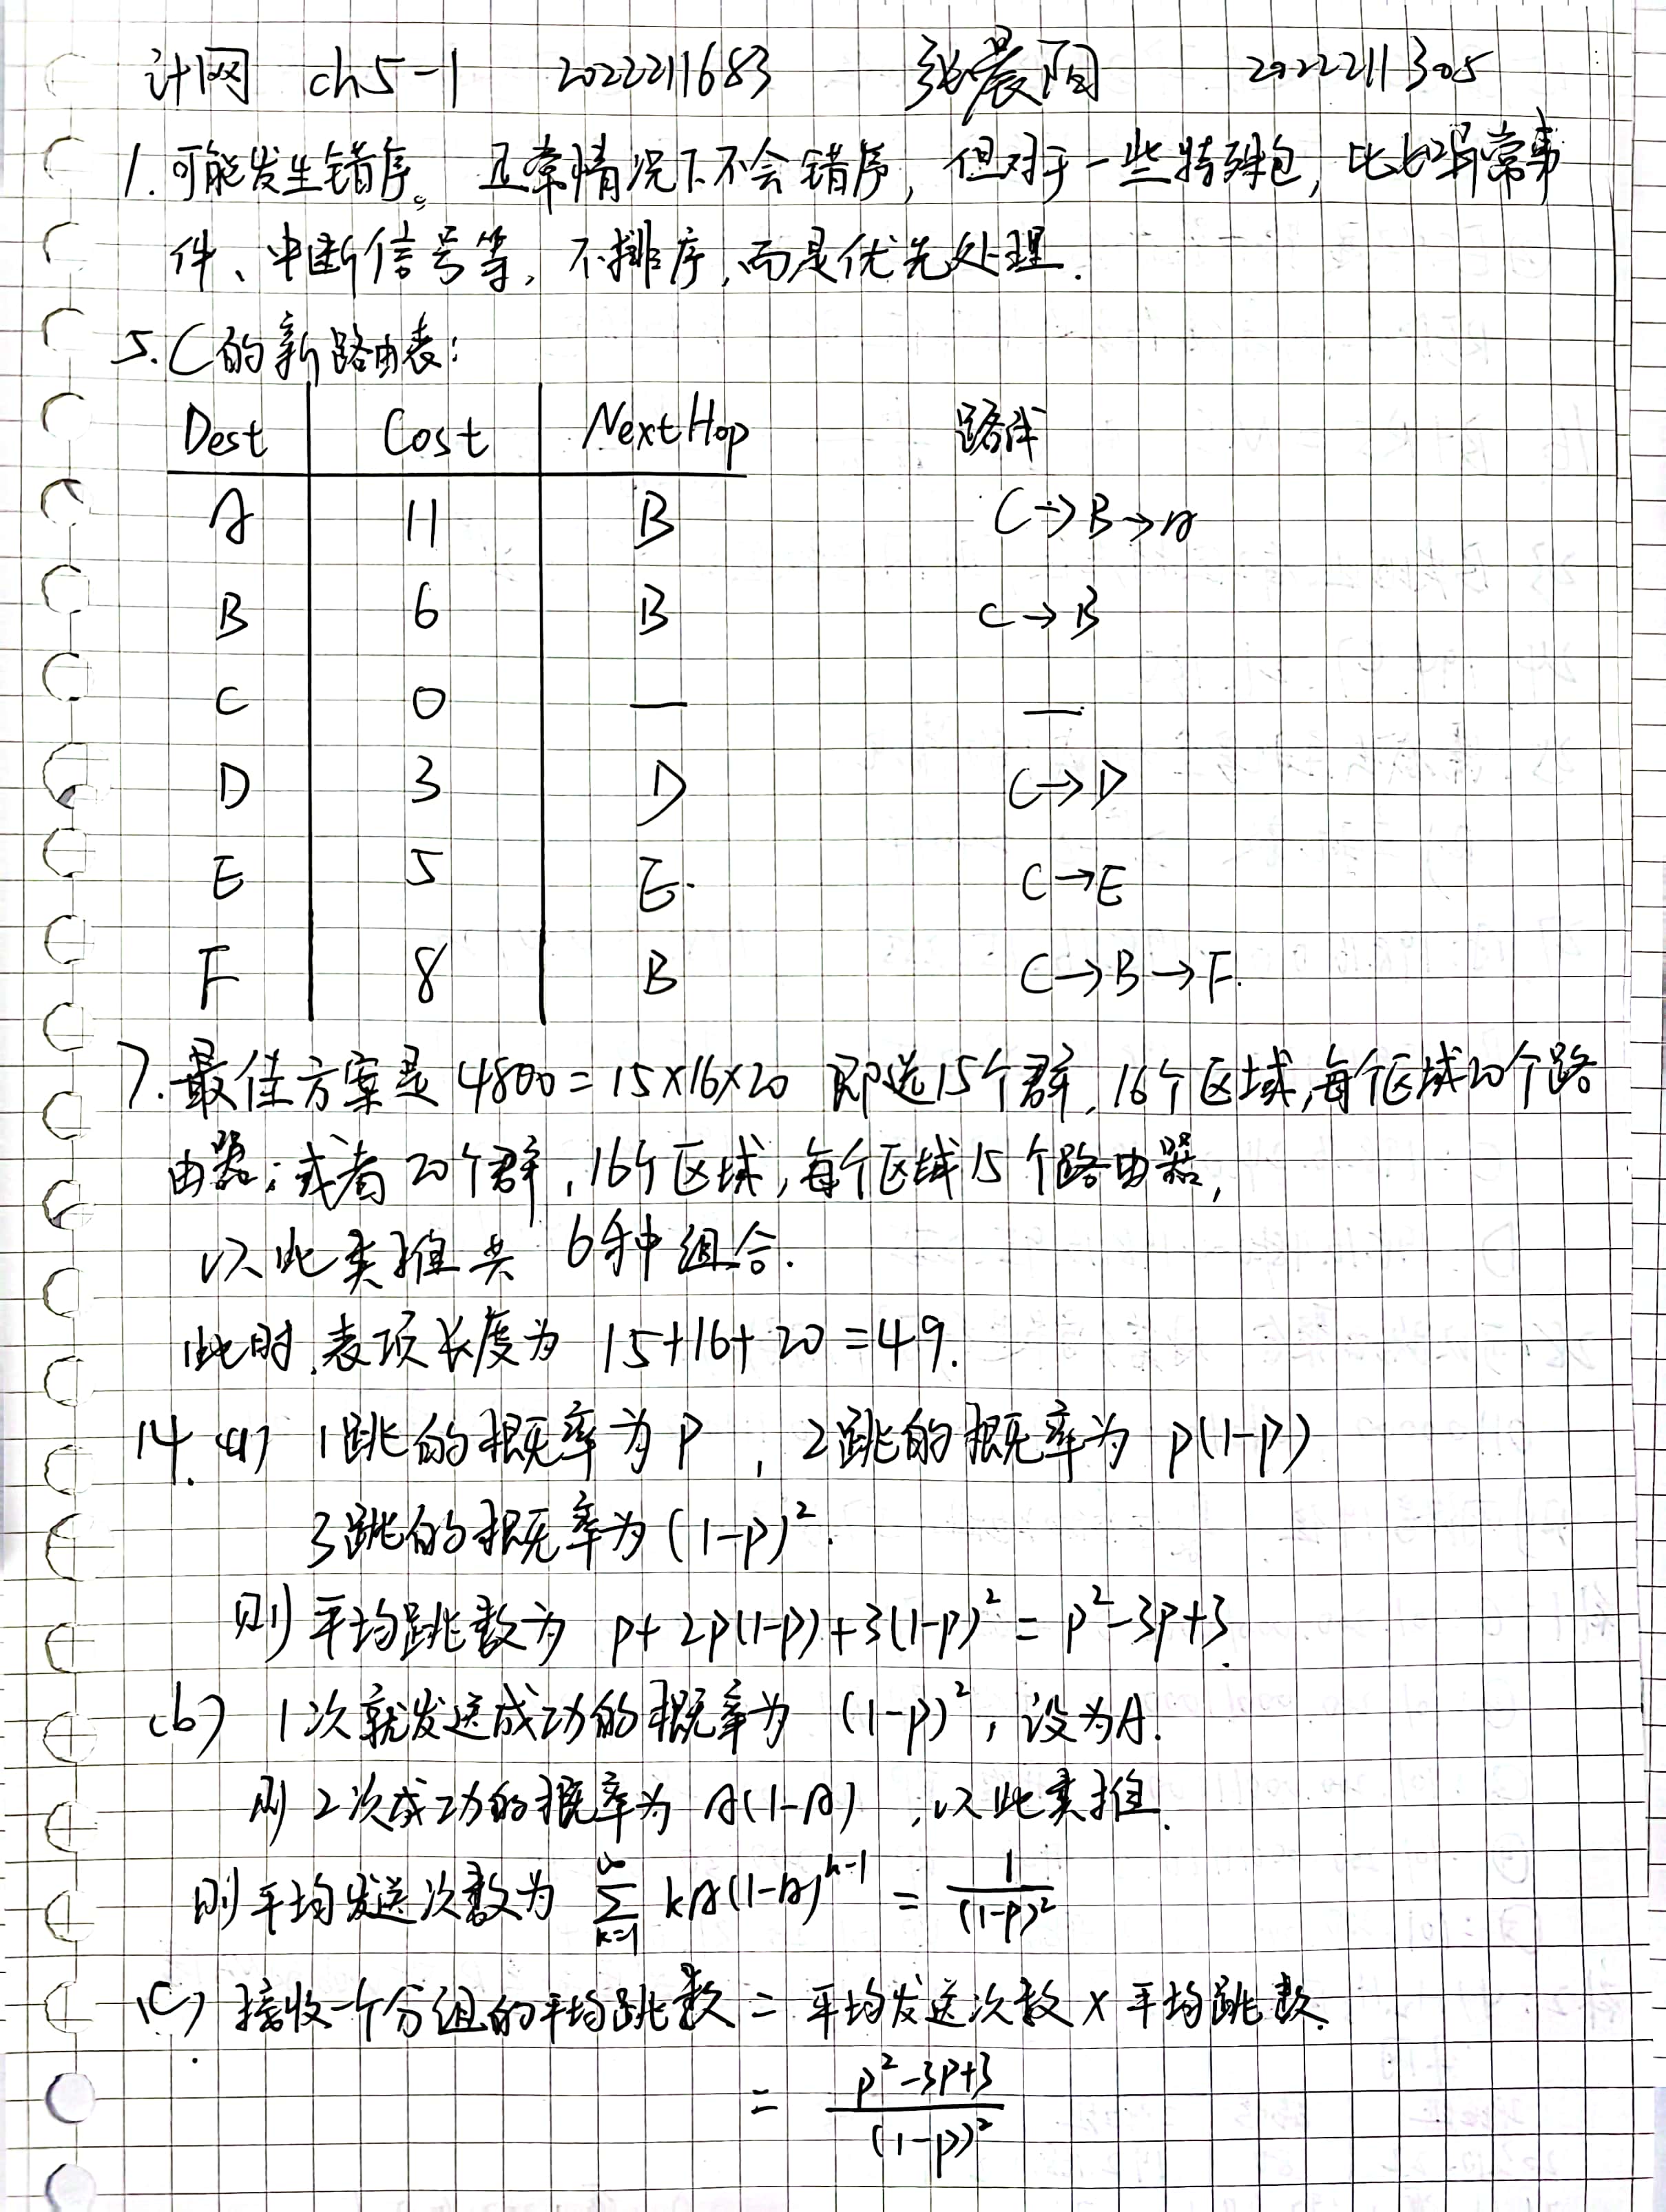 计网 ch5-1 2022211683 张晨阳 2022211305
1. 可能发生错序。正常情况下不会错序, 但对于一些特殊包, 比如异常事
件、中断信号等, 不排序, 而是优先处理.
5. C的新路由表:
Dest Cost NextHop 路线
A 11 B C→B→A
B 6 B C→B
C 0 — —
D 3 D C→D
E 5 E. C→E
F 8 B C→B→F.
7. 最佳方案是 4800=15×16×20 即选15个群, 16个区域, 每个区域20个路
由器; 或者 20个群, 16个区域, 每个区域15个路由器,
以此类推共 6种组合.
此时, 表项长度为 15+16+20=49.
14. (a) 1跳的概率为 P , 2跳的概率为 p(1-p)
3跳的概率为 (1-p)².
则平均跳数为 p+2p(1-p)+3(1-p)² = p²-3p+3.
(b) 1次就发送成功的概率为 (1-p)², 设为A.
则 2次成功的概率为 A(1-A) , 以此类推.
则平均发送次数为 ∑_{k=1}^{∞} kA(1-A)^{k-1} = 1/(1-p)²
(c) 接收一个分组的平均跳数 = 平均发送次数 × 平均跳数.
= (p²-3p+3)/(1-p)²